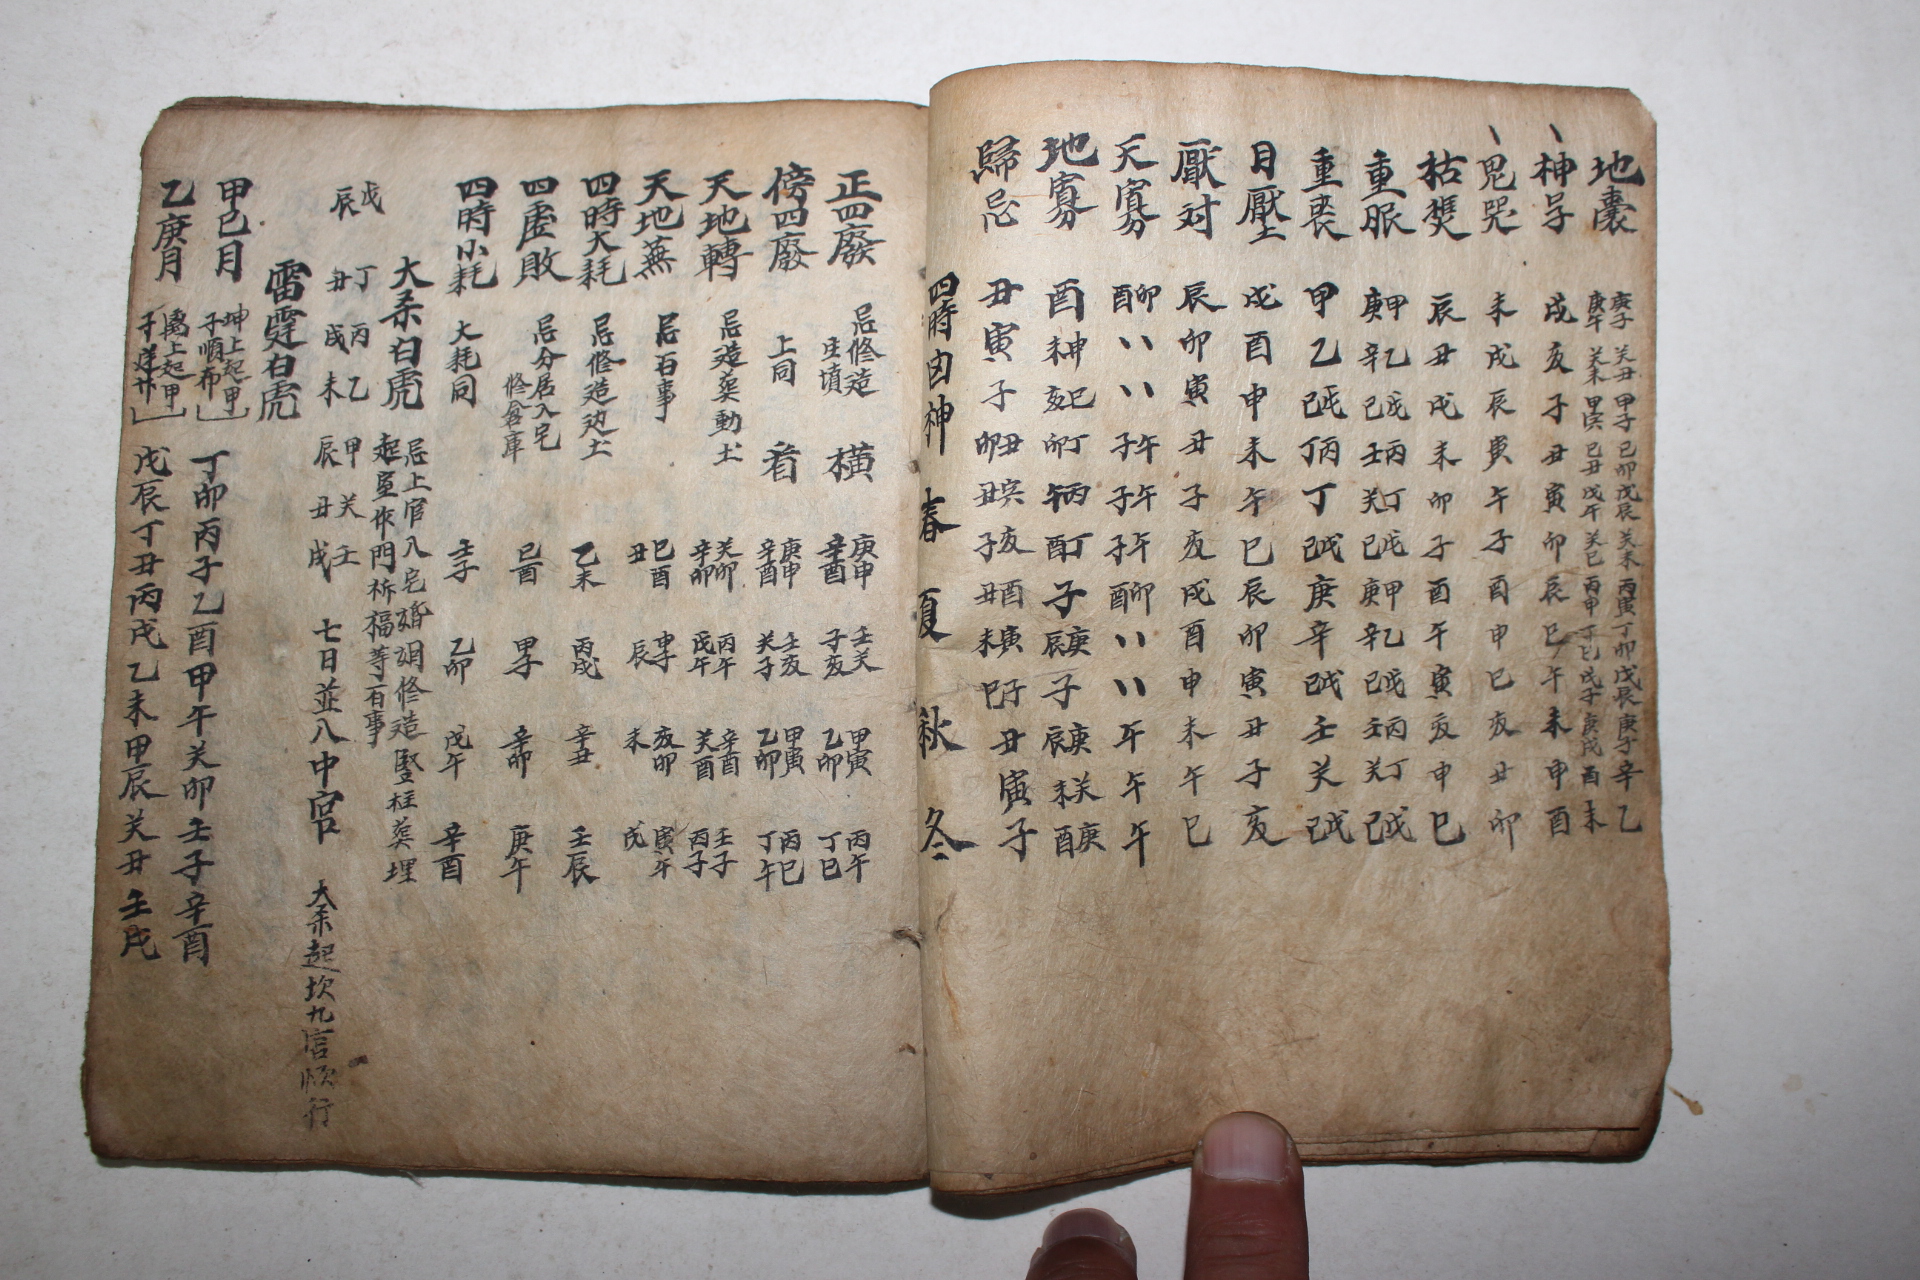 地囊 庚子 庚午 癸丑 癸未 甲子 甲寅 己卯 己丑 戊辰 戊午 癸未 癸巳 丙寅 丙申 丁卯 丁巳 戊辰 戊子 庚子 庚戌 辛 酉 乙 未
神号 戌亥子丑寅卯辰巳午未申酉
鬼哭 未戌辰寅午子酉申巳亥丑卯
枯焚 辰丑戌未卯子酉午寅亥申巳
重服 甲庚 乙辛 戊己 丙壬 丁癸 戊己 甲庚 乙辛 戊己 丙壬 丁癸 戊己
重丧 甲乙 戊己 丙丁 丁 戊己 庚辛 戊己 壬癸 戊己
月壓 戌酉申未午巳辰卯寅丑子亥
厭对 辰卯寅丑子亥戌酉申未午巳
天寡 卯酉 丶丶 丶丶 午子 午子 午子 卯酉 丶丶 丶丶 午午午
地寡
歸忌 丑寅子
四時凶神 春 夏 秋 冬
正四廢 忌修造 生墳 橫 庚申 辛酉 壬子 癸亥 甲寅 乙卯 丙午 丁巳
傍四廢 上同 看 庚申 辛酉 壬亥 癸子 甲寅 乙卯 丙巳 丁午
天地轉 忌造葬動土 癸卯 辛卯 丙午 戊午 辛酉 癸酉 壬子 丙子
天地蕪 忌百事 巳酉 丑 申子 辰 亥卯 未 寅午 戌
四時大耗 忌修造动土 乙未 丙戌 辛丑 壬辰
四虛敗 忌分居入宅 修倉庫 己酉 甲子 辛卯 庚午
四時小耗 大耗同 壬子 乙卯 戊午 辛酉
大杀白虎 忌上官入宅婚姻修造竪柱葬埋 起室作門祈福等百事
戊辰 丁丑 丙戌 乙未 甲辰 癸丑 壬戌 七日並入中宮 大杀起坎九宮順行
雷霆白虎
甲己月 坤上起甲子順布 丁卯丙子乙酉甲午癸卯壬子辛酉
乙庚月 離上起甲子 戊辰丁丑丙戌乙未甲辰癸丑壬戌